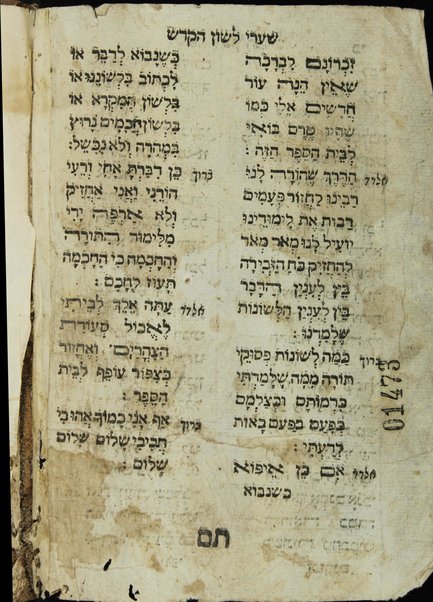 שערי לשון הקדש
זכרונם לברכה
שאין הנה עוד
חדשים אלי כמו
שהיו טרם בואי
לבית הספר הזה :
אלדד הדרך שהורה לנו
רבינו לחזור פעמים
רבות את לימודינו
יועיל לנו מאד מאד
להחזיק כח הזכירה
בין לענין הדבר
בין לענין הלשונות
שלמדנו :
ברוך כמה לשונות פסוקי
תורה ממה שלמדתי
כדמותם ובצלמם
בפעם בפעם באות
לדעתי :
אלדד אם כן איפוא
כשנבוא
כשנבוא לדבר או
לכתוב בלשוננו או
בלשון המקרא או
בלשון חכמים נרוץ
במהרה ולא נכשל :
ברוך כן דברת אחי ורעי
הורני ואני אחזיק
ולא ארפה ידי
מלימוד התורה
והחכמה כי החכמה
תעוז לחכם :
אלדד עתה אלך לביתי
לאכול סעודת
הצהרים ואחזור
כצפור עופף לבית
הספר :
ברוך אף אני כמוך אהובי
חביבי שלום שלום
שלום :
תם
01473